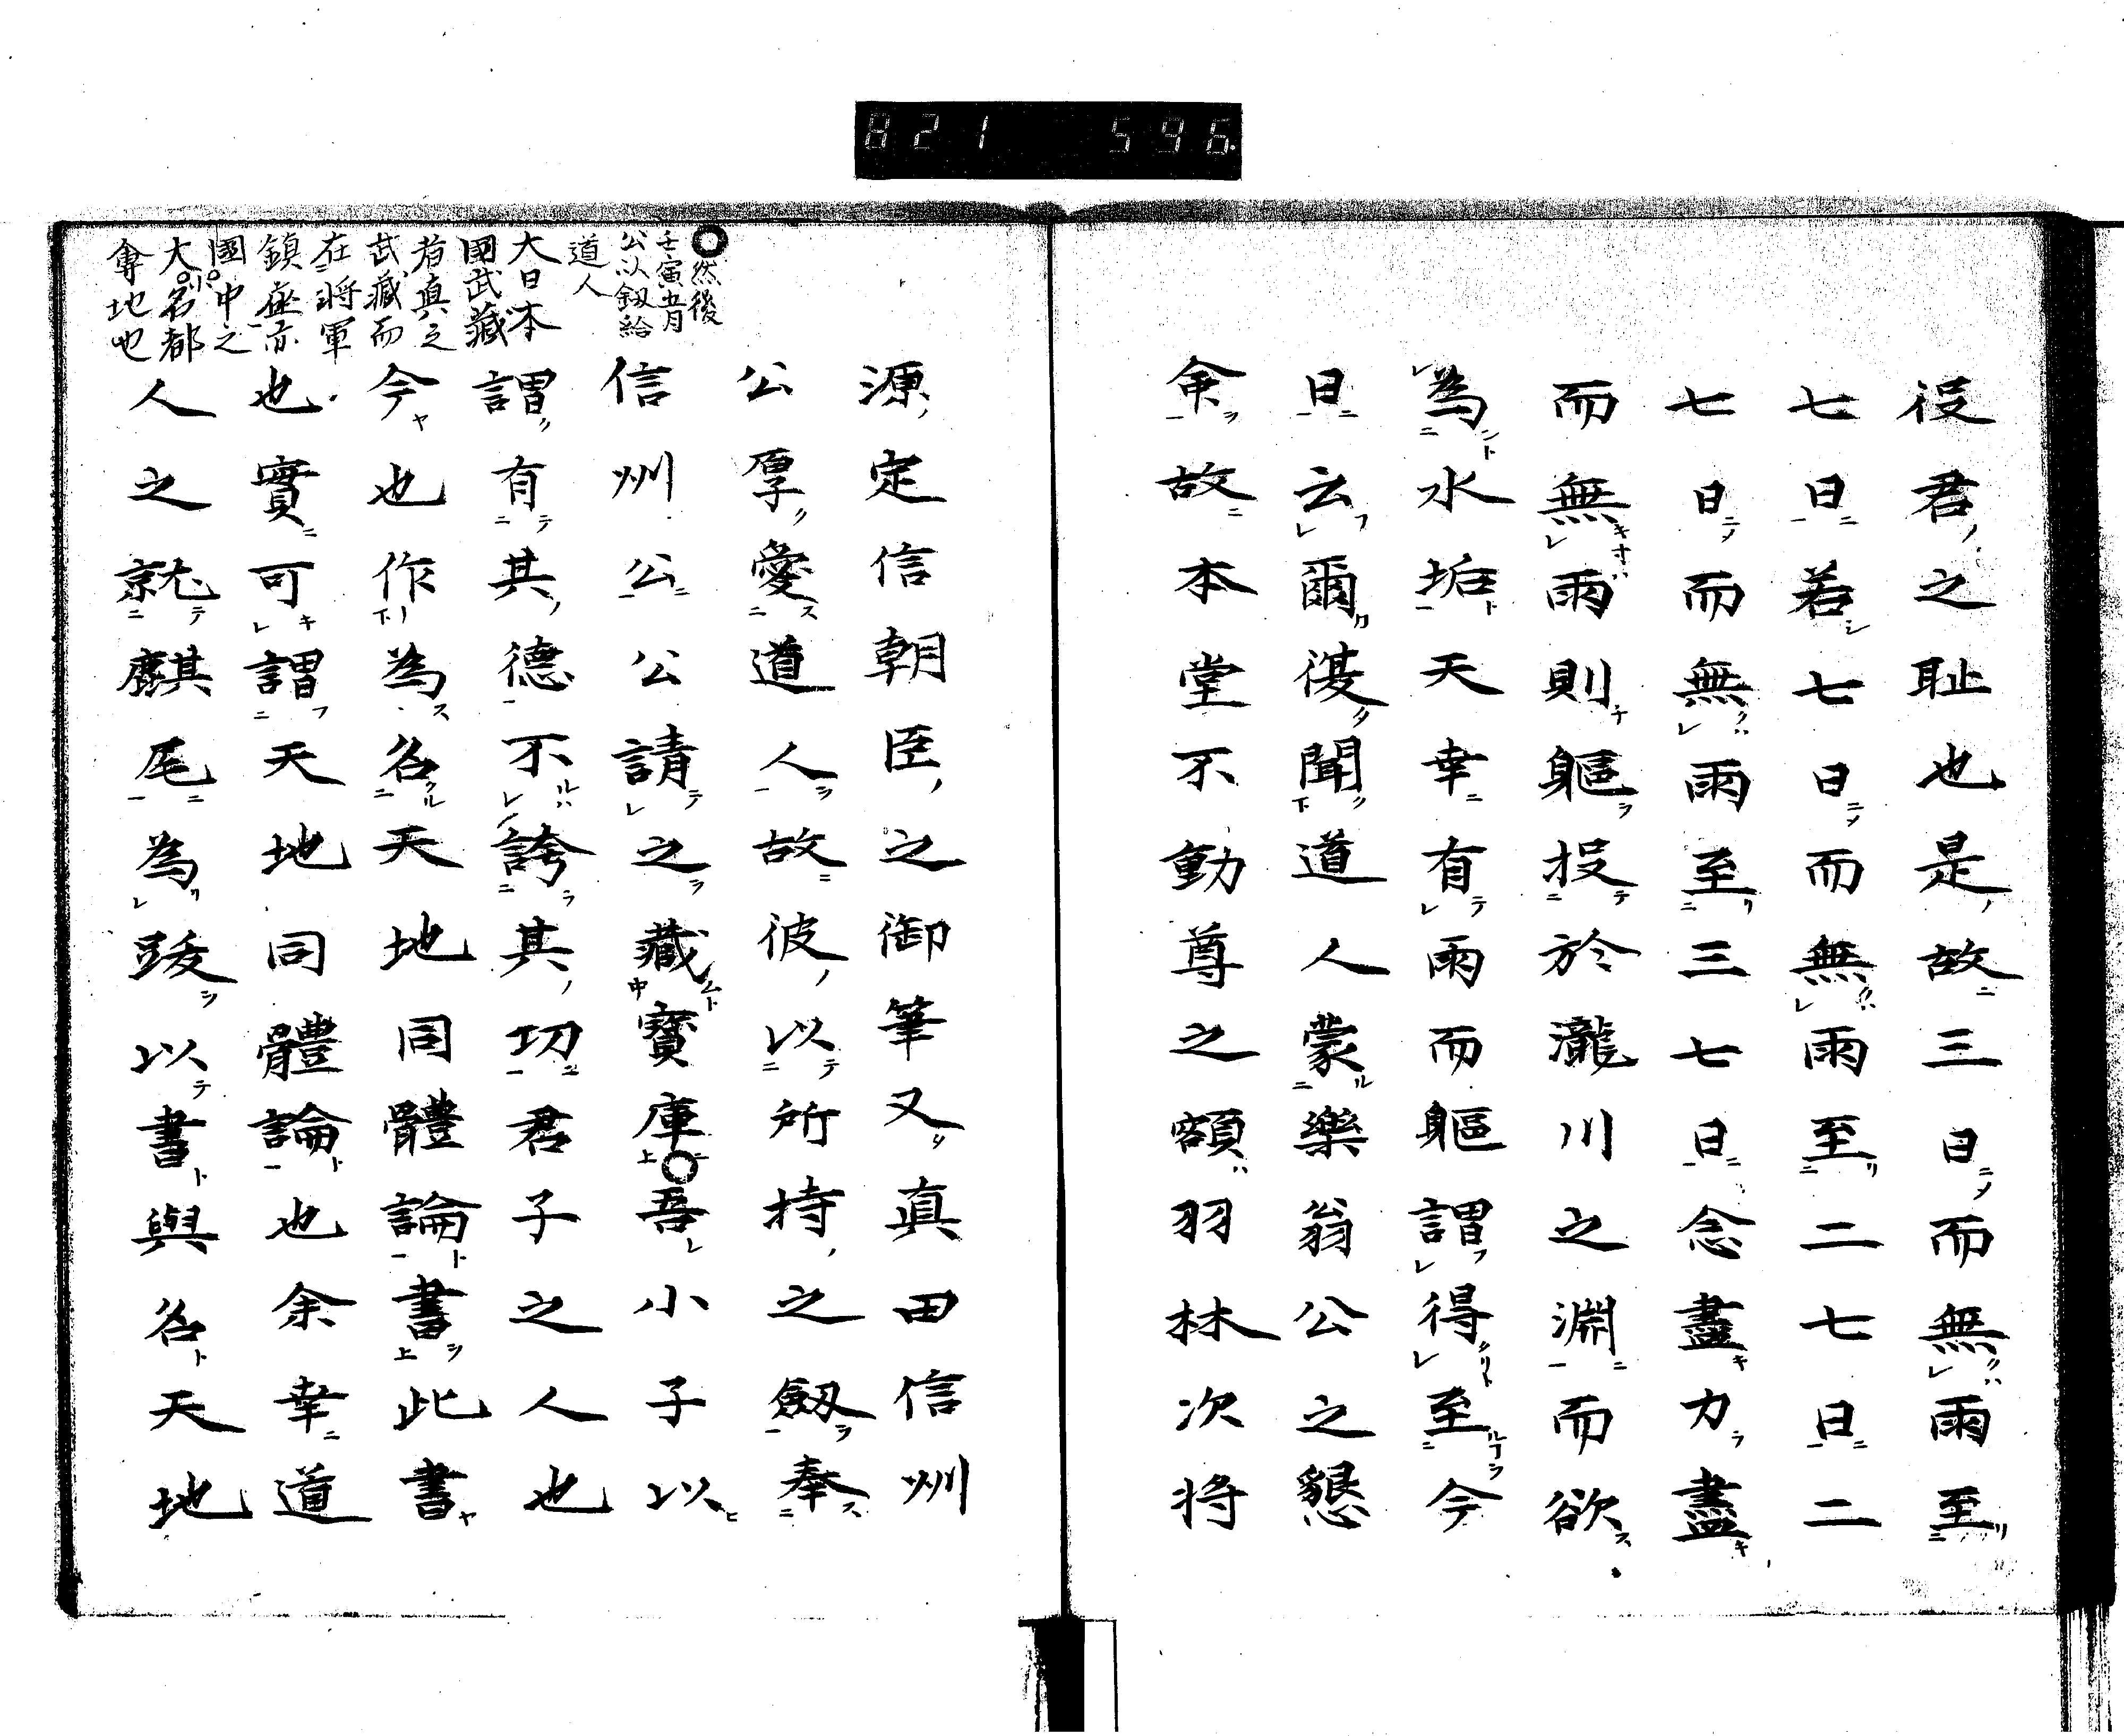 821 596
役君之耻也是故三日而無雨至
七日若七日而無雨至二七日二
七日而無雨至三七日念盡力盡
而無雨則軀投於瀧川之淵而欲
為水垢天幸有雨而軀謂得至今
日云爾後聞道人蒙樂翁公之懇
余故本堂不動尊之額羽林次將
源定信朝臣之御筆又真田信州
公厚愛道人故彼以所持之劔奉
信州公公請之藏寶庫吾小子以
謂有其德不誇其功君子之人也
今也作為名天地同體論書此書
也實可謂天地同體論也余幸道
人之就麒尾為跋以書與名天地
然後
壬寅五月
公以劔給
道人
大日本
國武藏
者真之
武藏而
在將軍
鎮座亦
國中之
大名都
會地也